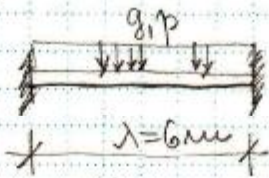 g,p
λ=6m